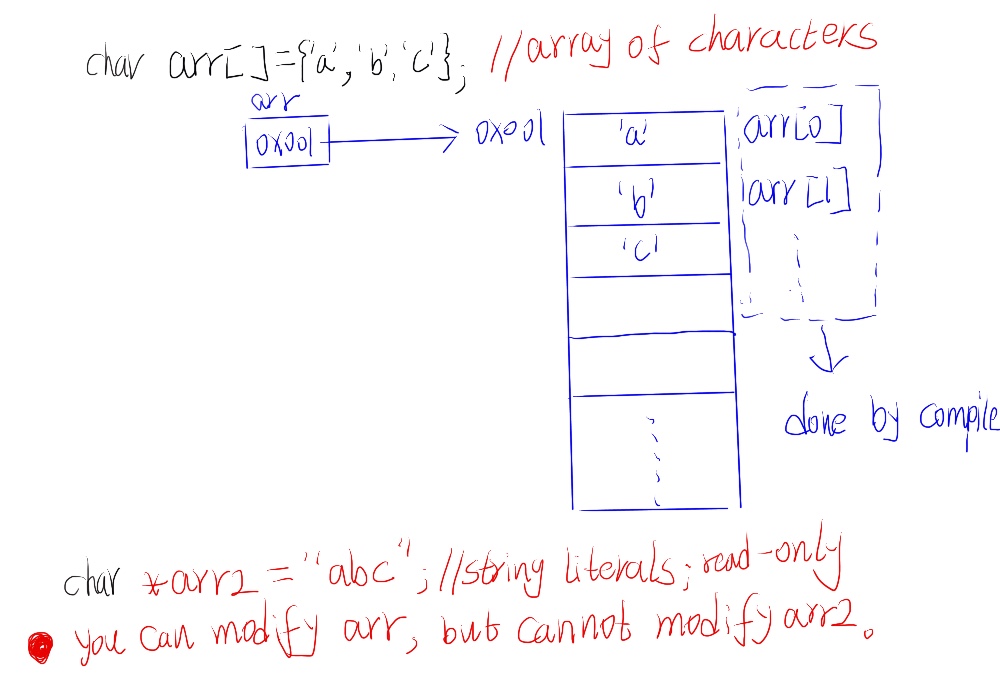 char arr[]={'a','b','c'}; //array of characters
arr
0x001
0x001
'a'
arr[0]
'b'
arr[1]
'c'
done by compile
char *arr2="abc"; //string literals; read-only
you can modify arr, but cannot modify arr2.